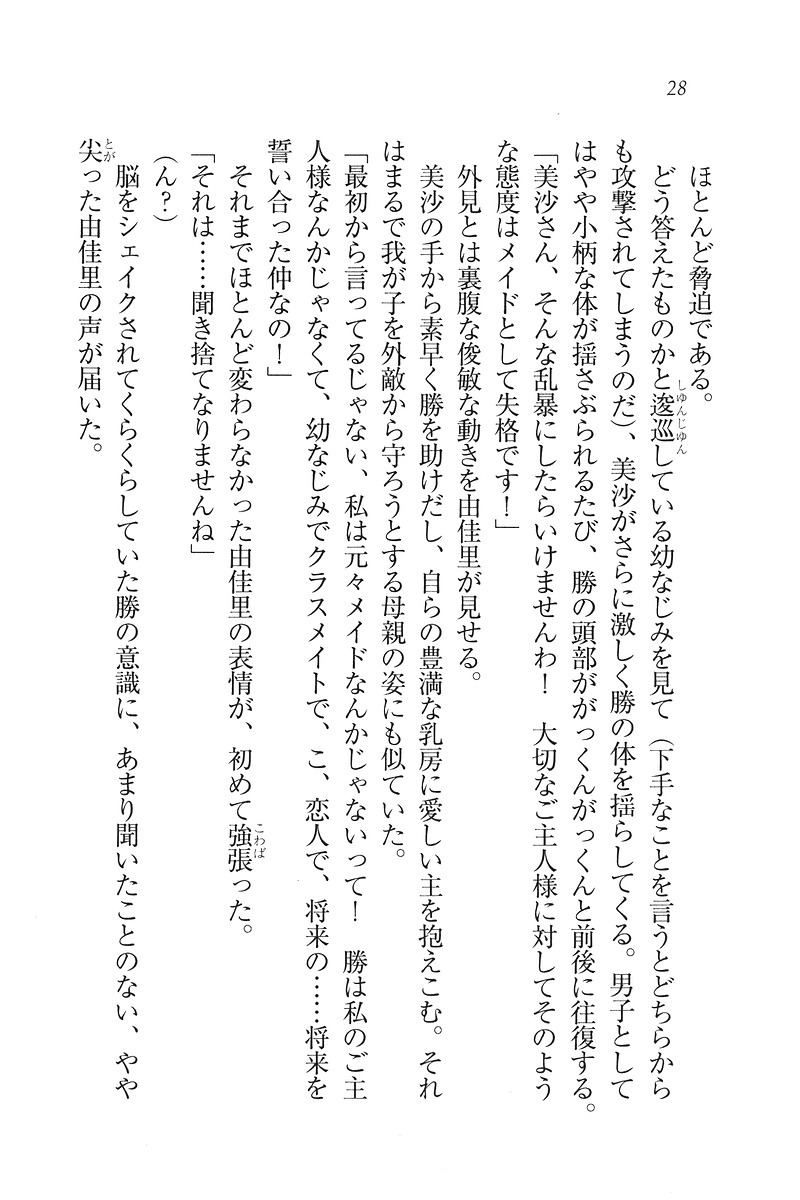 28
ほとんど脅迫である。
どう答えたものかと逡巡している幼なじみを見て（下手なことを言うとどちらから
しゅんじゅん
も攻撃されてしまうのだ）、美沙がさらに激しく勝の体を揺らしてくる。男子として
はやや小柄な体が揺さぶられるたび、勝の頭部ががっくんがっくんと前後に往復する。
「美沙さん、そんな乱暴にしたらいけませんわ！　大切なご主人様に対してそのよう
な態度はメイドとして失格です！」
外見とは裏腹な俊敏な動きを由佳里が見せる。
美沙の手から素早く勝を助けだし、自らの豊満な乳房に愛しい主を抱えこむ。それ
はまるで我が子を外敵から守ろうとする母親の姿にも似ていた。
「最初から言ってるじゃない、私は元々メイドなんかじゃないって！　勝は私のご主
人様なんかじゃなくて、幼なじみでクラスメイトで、こ、恋人で、将来の……将来を
誓い合った仲なの！」
それまでほとんど変わらなかった由佳里の表情が、初めて強張った。
こわば
「それは……聞き捨てなりませんね」
（ん？）
脳をシェイクされてくらくらしていた勝の意識に、あまり聞いたことのない、やや
尖った由佳里の声が届いた。
とが